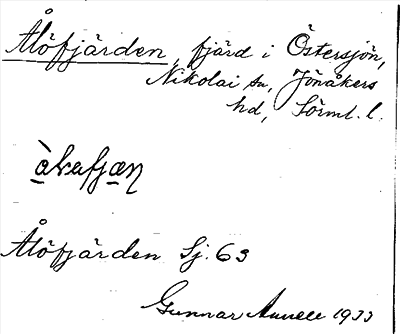 Ålöfjärden, fjärd i Östersjön,
Nikolai sn, Jönåkers
hd, Sörml. l.
Ålöfjärden Sj. 63
Gunnar 1933